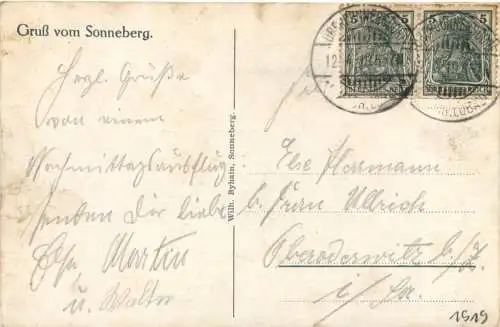 Gruß vom Sonneberg.
Herzl. Grüße
von einem
Nachmittagsausflug
senden Dir liebe
Martin
u. Walter
Wilh. Byhain, Sonneberg.
5 5
5 5
Else Herrmann
b. Frau Ullrich
Oberoderwitz b/Z.
i/Sa.
1919